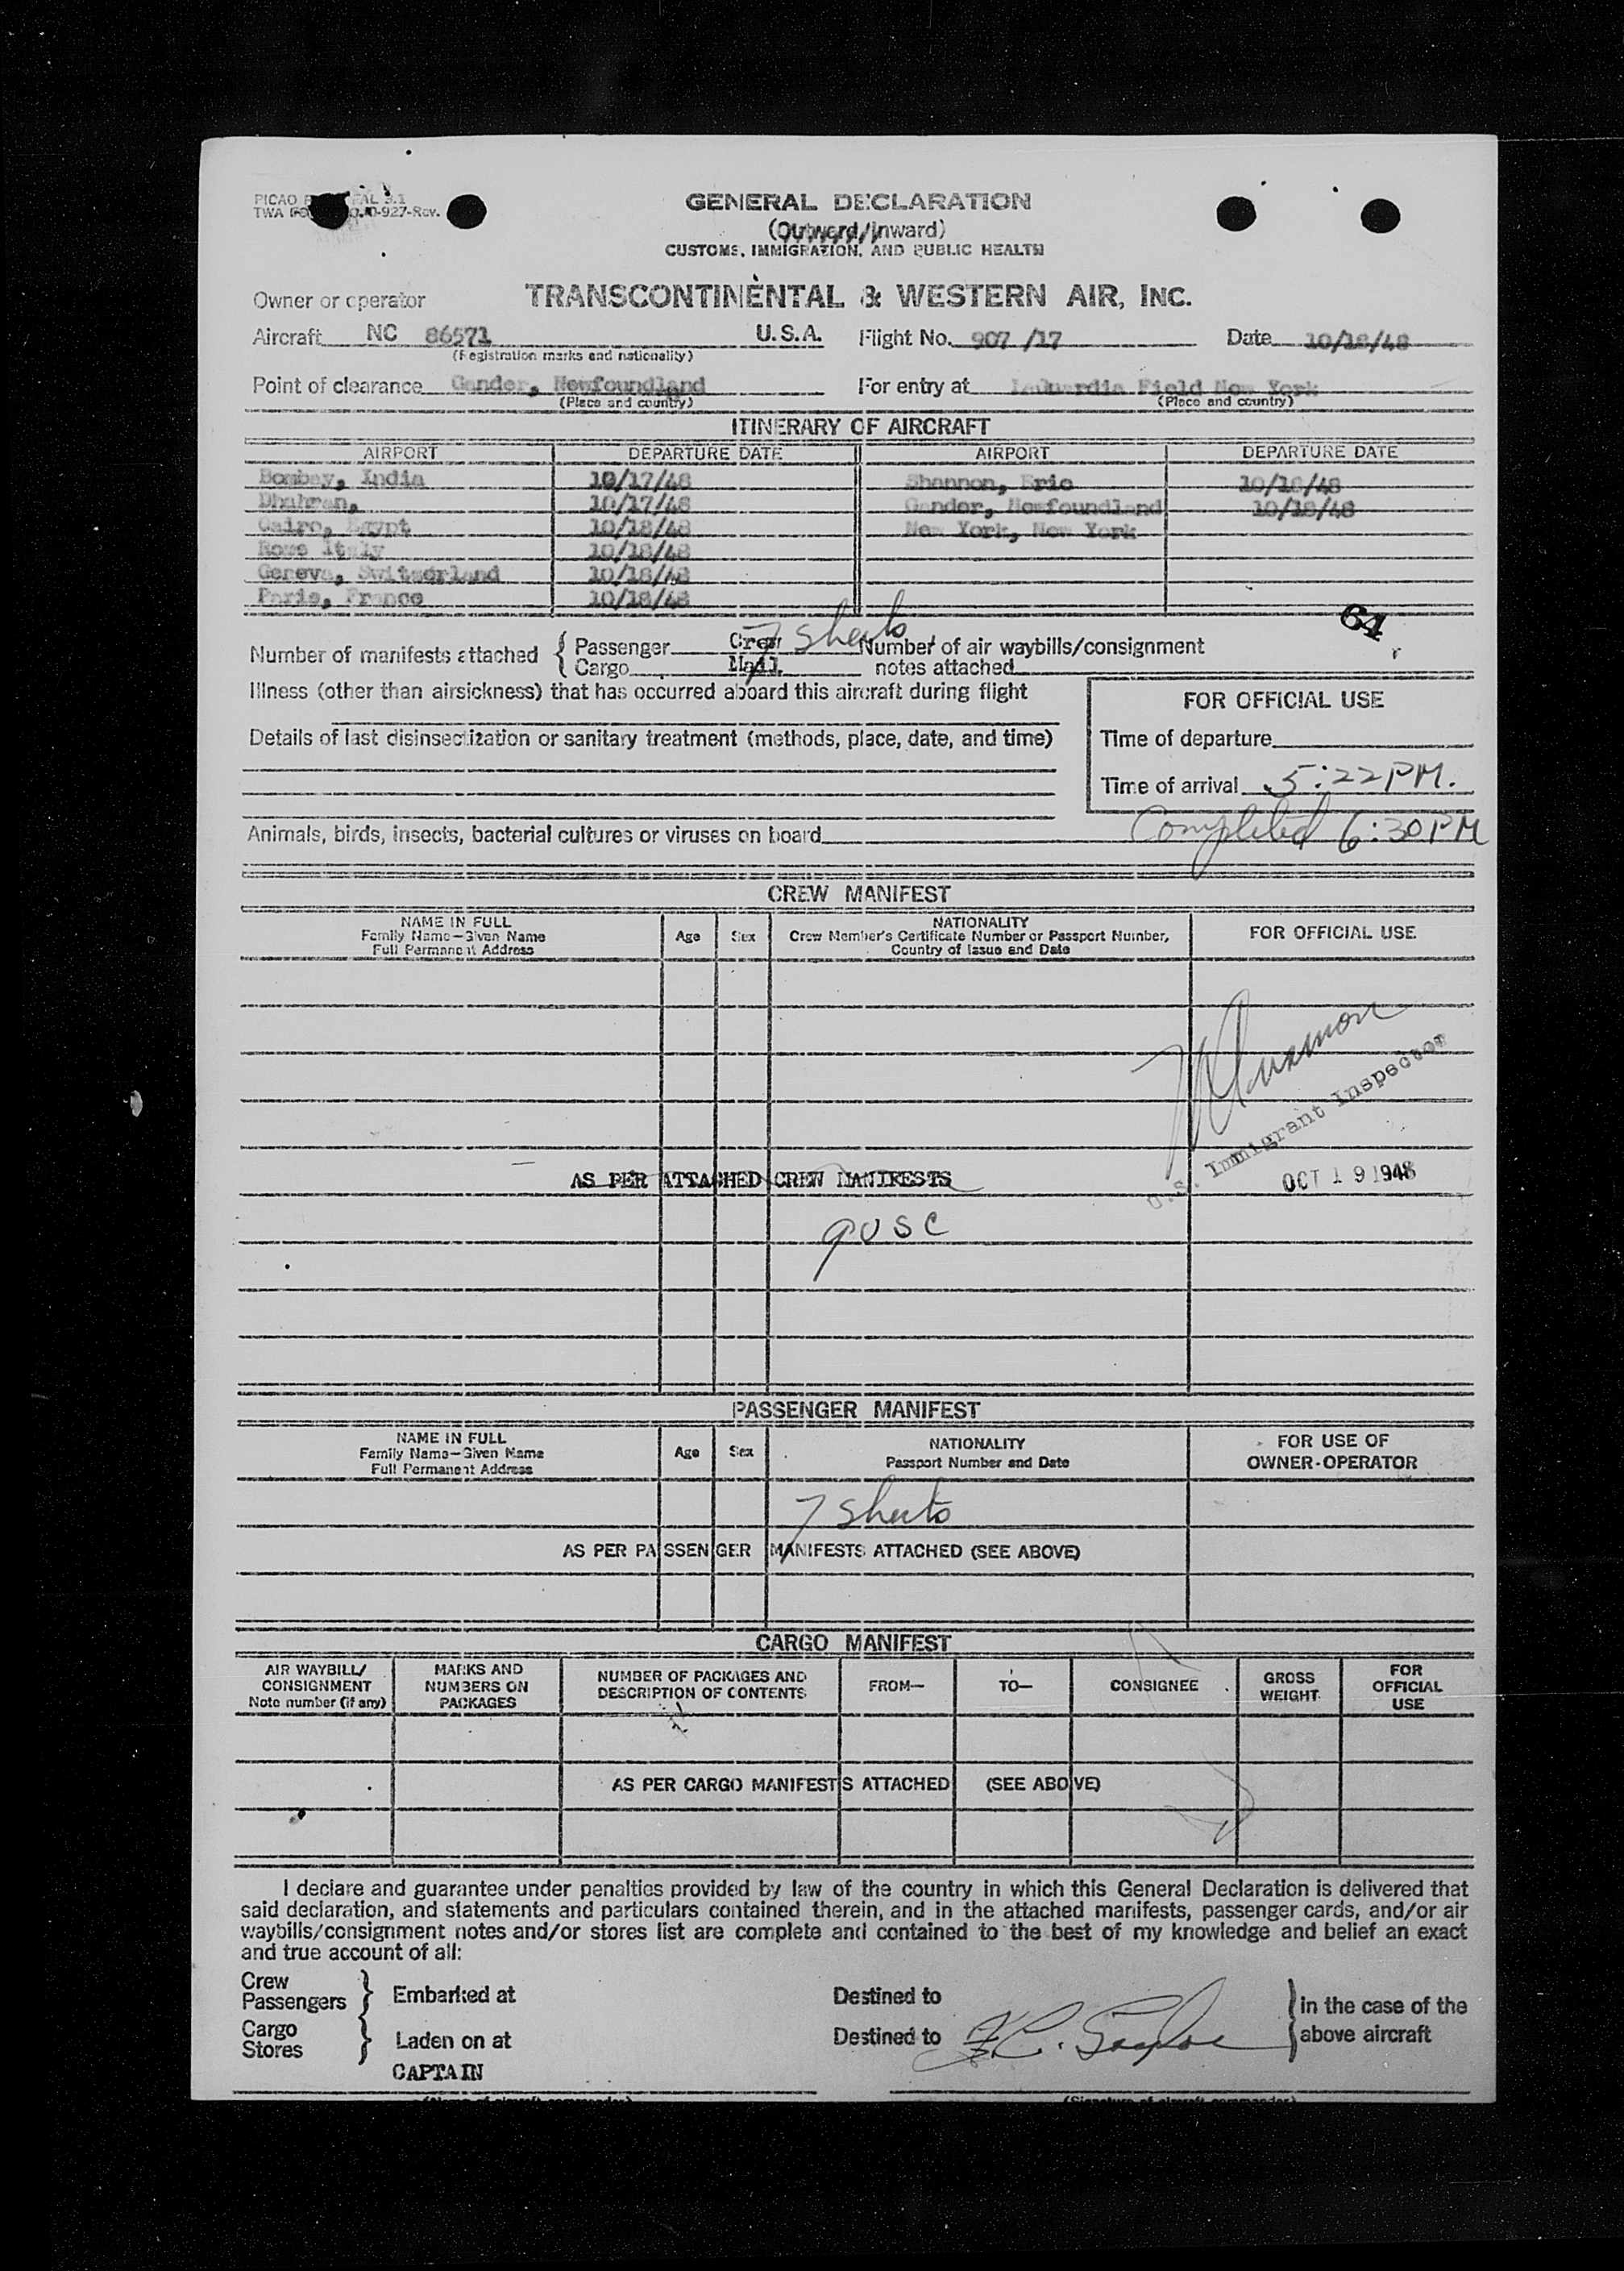 GENERAL DECLARATION
(Outward/Inward)
CUSTOMS, IMMIGRATION, AND PUBLIC HEALTH
PICAO
TWA 0-927-Rev.
Owner or operator TRANSCONTINENTAL & WESTERN AIR, INC.
Aircraft NC 86571 U.S.A. Flight No. 907 /17 Date 10/18/48
(Registration marks and nationality)
Point of clearance Gander, Newfoundland For entry at LaGuardia Field New York
(Place and country) (Place and country)
ITINERARY OF AIRCRAFT
AIRPORT DEPARTURE DATE AIRPORT DEPARTURE DATE
Bombay, India 10/17/48 Shannon, Eric 10/18/48
Dhahran, 10/17/48 Gander, Newfoundland 10/18/48
Cairo, Egypt 10/18/48 New York, New York
Rome Italy 10/18/48
Geneva, Switzerland 10/18/48
Paris, France 10/18/48
64
7 Sheets
Number of manifests attached { Passenger Crew Number of air waybills/consignment
Cargo Mail notes attached
Illness (other than airsickness) that has occurred aboard this aircraft during flight
FOR OFFICIAL USE
Details of last disinsectization or sanitary treatment (methods, place, date, and time)
Time of departure
Time of arrival 5:22 PM.
Completed 6:30 PM
Animals, birds, insects, bacterial cultures or viruses on board
CREW MANIFEST
NAME IN FULL
Family Name—Given Name
Full Permanent Address
Age Sex
NATIONALITY
Crew Member's Certificate Number or Passport Number,
Country of Issue and Date
FOR OFFICIAL USE
U.S. Immigrant Inspector
OCT 19 1948
AS PER ATTACHED CREW MANIFESTS
9 USC
PASSENGER MANIFEST
NAME IN FULL
Family Name—Given Name
Full Permanent Address
Age Sex
NATIONALITY
Passport Number and Date
FOR USE OF
OWNER-OPERATOR
7 Sheets
AS PER PASSENGER MANIFESTS ATTACHED (SEE ABOVE)
CARGO MANIFEST
AIR WAYBILL/
CONSIGNMENT
Note number (if any)
MARKS AND
NUMBERS ON
PACKAGES
NUMBER OF PACKAGES AND
DESCRIPTION OF CONTENTS
FROM—
TO—
CONSIGNEE
GROSS
WEIGHT
FOR
OFFICIAL
USE
AS PER CARGO MANIFESTS ATTACHED (SEE ABOVE)
I declare and guarantee under penalties provided by law of the country in which this General Declaration is delivered that
said declaration, and statements and particulars contained therein, and in the attached manifests, passenger cards, and/or air
waybills/consignment notes and/or stores list are complete and contained to the best of my knowledge and belief an exact
and true account of all:
Crew
Passengers } Embarked at Destined to
Cargo
Stores } Laden on at Destined to
in the case of the
above aircraft
CAPTAIN
(Name of aircraft commander) (Signature of aircraft commander)